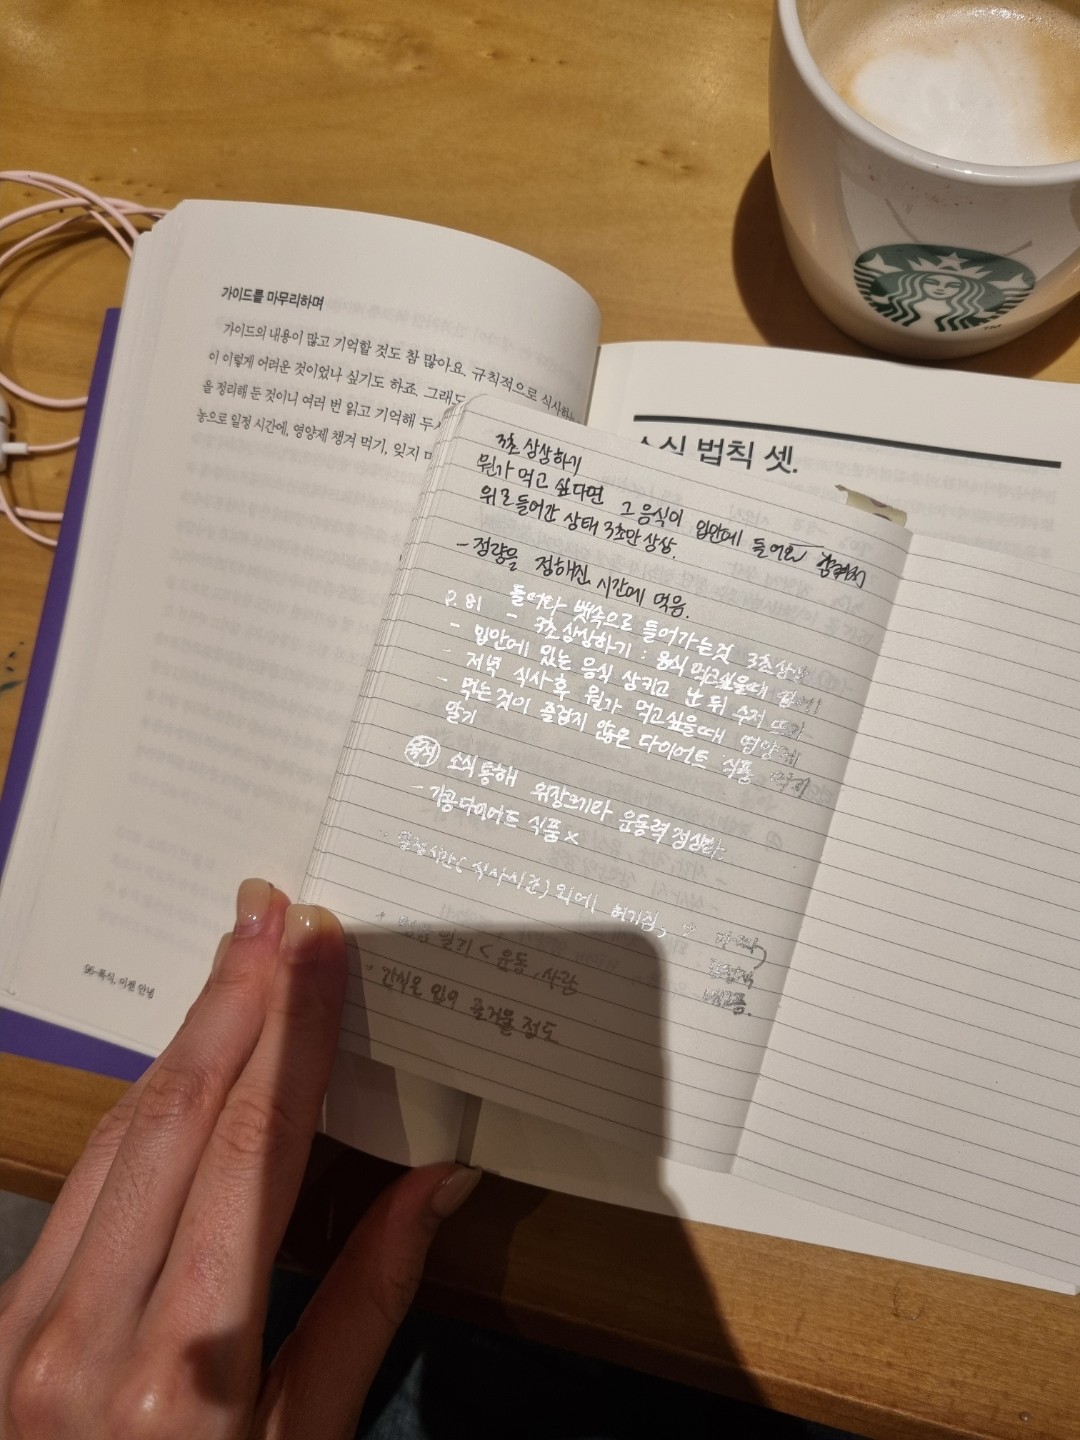 가이드를 마무리하며
가이드의 내용이 많고 기억할 것도 참 많아요. 규칙적으로 식사하는
이 이렇게 어려운 것이었나 싶기도 하죠. 그래도
을 정리해 둔 것이니 여러 번 읽고 기억해 두
놓으로 일정 시간에, 영양제 챙겨 먹기, 잊지
96·폭식, 이젠 안녕
소식 법칙 셋.
3초 상상하기
뭔가 먹고 싶다면 그 음식이 입안에 들어와
위로 들어간 상태 3초만 상상.
- 정량을 정해진 시간에 먹음.
P. 81 들어라 뱃속으로 들어가는것 3초상상
- 3초상상하기 : 음식 먹고싶을때
- 입안에 있는 음식 삼키고 난 뒤 수저 뜨기
- 저녁 식사 후 뭔가 먹고싶을때 영양제
- 먹는것이 즐겁지 않은 다이어트 식품
알기
목적 소식 통해 위장크기와 운동력 정상화.
- 가공다이어트 식품 x
(식사시간) 외에 허기짐,
일기 < 운동, 사람
- 간식은 입이 즐거울 정도